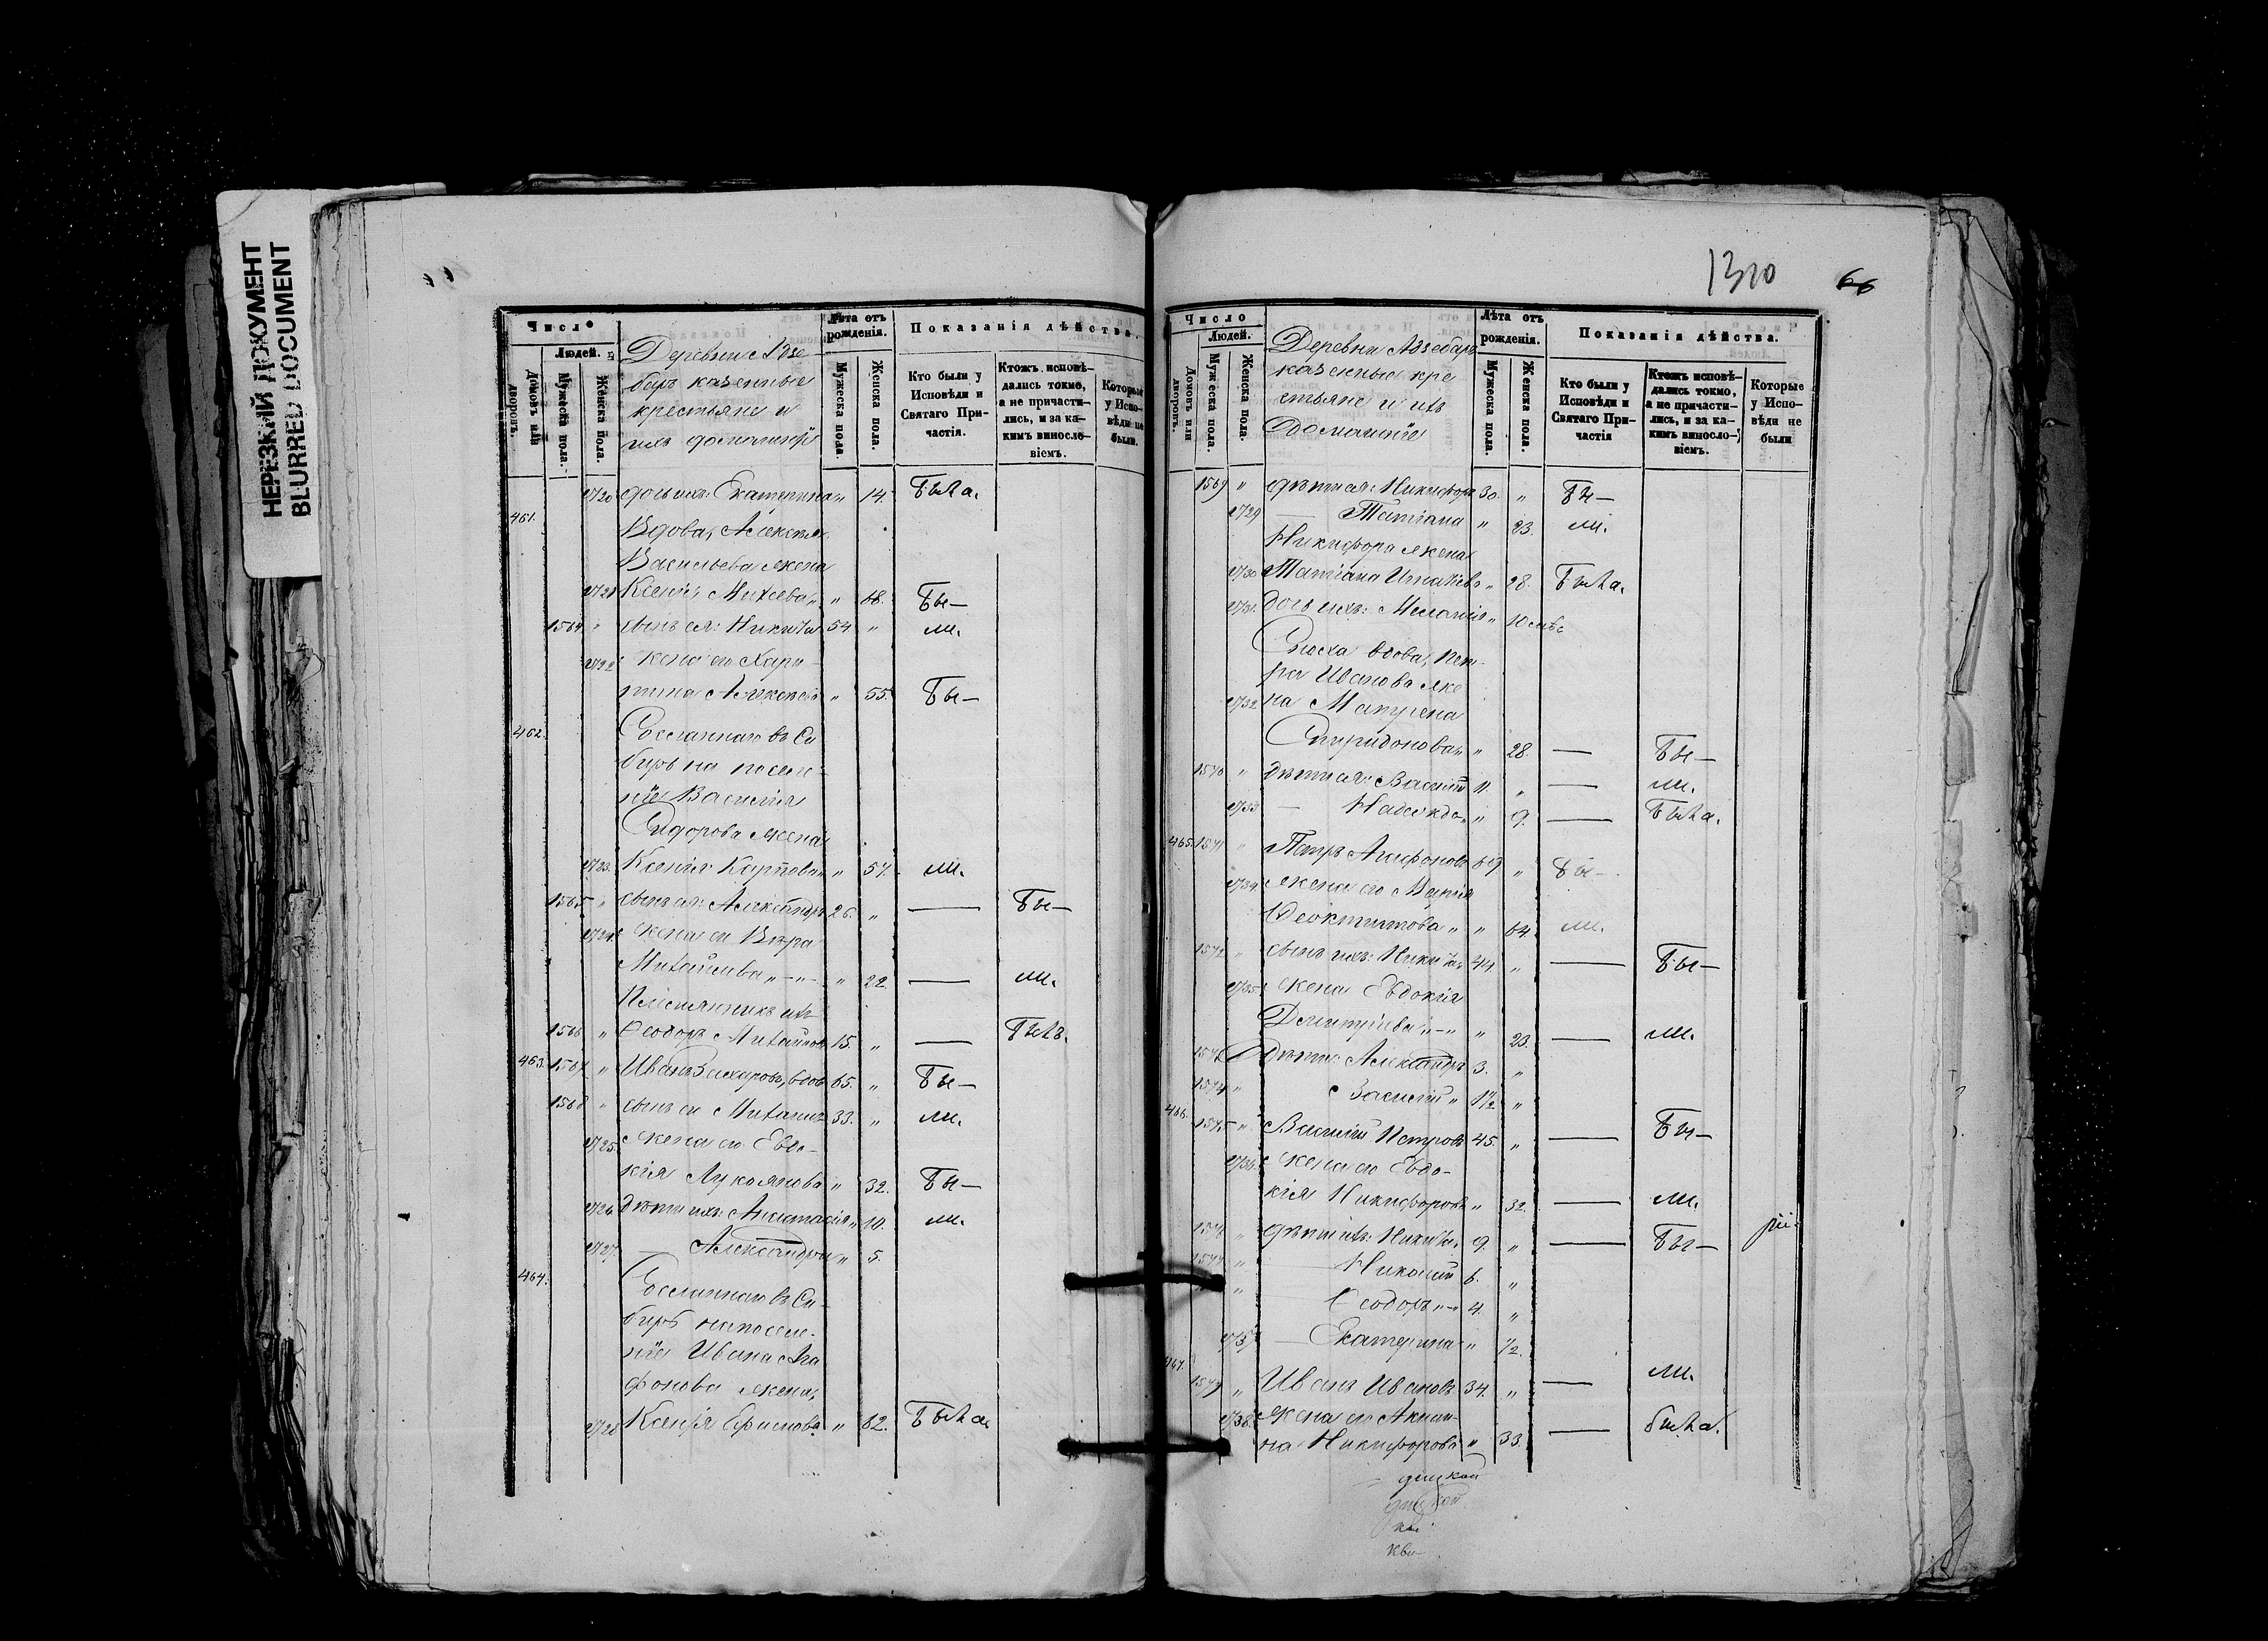 НЕРЕЗКИЙ ДОКУМЕНТ
BLURRED DOCUMENT
1310
66
Число
Людей.
Домовъ или дворовъ.
Мужеска пола.
Женска пола.
Деревни Азе-
баръ казенные
крестьяне и
ихъ домашнiе
Лѣта отъ рожденія.
Мужеска пола.
Женска пола.
Показанія дѣйства.
Кто были у Исповѣди и Святаго При-частія.
Ктожъ исповѣ-дались токмо, а не причасти-лись, и за ка-кимъ винословіемъ.
Которые у Испо-вѣди не были.
2720 дочь ихъ: Екатерина " 14. Была.
461. Вдова, Алексѣя
Васильева жена
2721 Ксенія Михеева " " 68. Бы—
1564 " сынъ ея: Никита 54 " ли.
2722 жена его Хари-
тина Алексѣева " 55. Бы—
462. Сосланнаго въ Си
бирь на поселе-
ніе Василія
Сидорова жена
2723. Ксенія Карпова " " 57. ли.
1565 " сынъ ея: Александръ 26. " — Бы—
2724. жена его Вѣра
Михайлова " — " — " 22. — ли.
Племянникъ ихъ
1566 " Ѳеодоръ Михайловъ 15. " — Былъ.
463. 1567 " Иванъ Захаровъ, вдов 65. " Бы—
1568 " сынъ его Михаилъ 33. " ли.
2725. жена его Евдо-
кія Лукоянова " 32. Бы—
2726 дѣти ихъ: Анастасія " 10. ли.
2727. — Александра " 5.
464. Сосланнаго въ Си-
бирь на поселе-
ніе Ивана Ага
фонова жена,
2728 Ксенія Ефимова " 62. Была
Число
Людей.
Домовъ или дворовъ.
Мужеска пола.
Женска пола.
Деревни Азебаръ
казенные кре
стьяне и ихъ
Домашніе
Лѣта отъ рожденія.
Мужеска пола.
Женска пола.
Показанія дѣйства.
Кто были у Исповѣди и Святаго При-частія
Ктожъ исповѣ-дались токмо, а не причасти-лись, и за ка-кимъ винословіемъ.
Которые у Испо-вѣди не были
1569 " дѣти ея: Никифоръ 30. " Бы—
2729 — Татіана " 23. ли.
Никифора жена
2730 Татіана Игнатіева " 28. Была.
2731. дочь ихъ: Меланія " 10
Сноха вдова, Пет-
ра Иванова же
2732 на Матрена
Спиридонова " " 28. — Бы—
1570 " дѣти ея: Василій 11. " — ли.
2733 — Надежда " " 9. — Была.
465. 1571 " Петръ Агафоновъ 69 " Бы—
2734 жена его Марія
Ѳеоктистова " " 64. ли.
1572 " сынъ ихъ: Никита 44. " — Бы—
2735 жена Евдокія
Дмитріева " — " " 23. — ли.
1573 дѣти: Александръ 3. "
1574 " Василій " 1½ "
466. 1575 " Василій Петровъ 45. " — Бы—
2736 жена его Евдо-
кія Никифорова " 32. — ли.
1576 " дѣти ихъ: Никита 9. " — Бы—
1577 " Николай 6. "
" Ѳеодоръ " — " 4. "
2737 — Екатерина " ½.
467. 1579 " Иванъ Ивановъ 34. " — ли.
2738. жена его Акили-
на Никифорова " 33. — была.